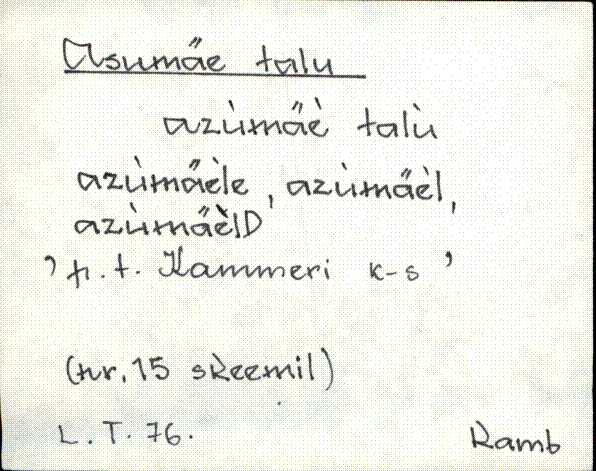 Asumäe talu
azùmäè talù
azùmäèle, azùmäèl,
azùmäèlD
' p.t. Kammeri k-s '
(nr. 15 skeemil)
L.T. 76. Kamb